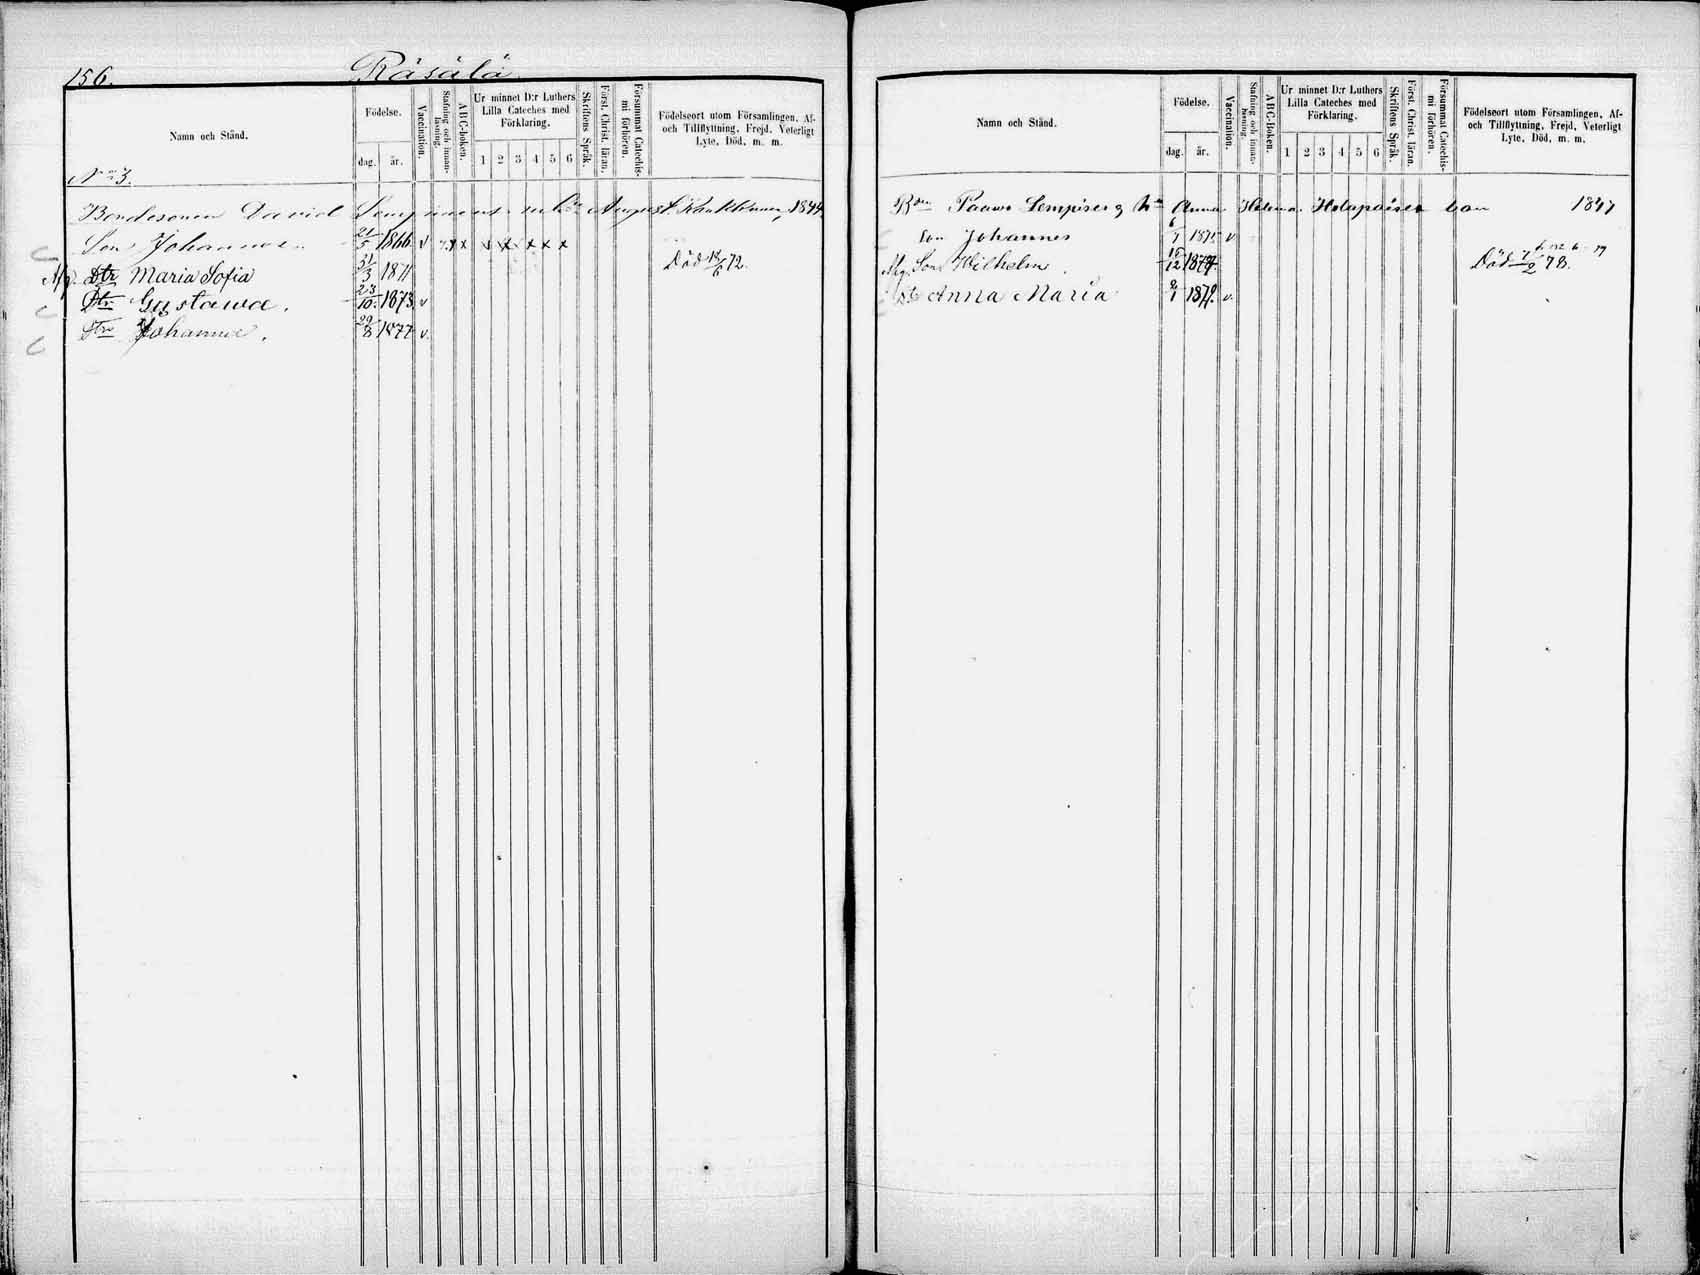 156. Räsälä
Namn och Stånd.
Födelse.
dag. år.
Vaccination.
Stafning och innan-läsning.
ABC-boken.
Ur minnet D:r Luthers Lilla Cateches med Förklaring.
1 2 3 4 5 6
Skriftens Språk.
Först. Christ. läran.
Försummat Catechis-mi förhören.
Födelseort utom Församlingen, Af-och Tillflyttning, Frejd, Veterligt Lyte, Död, m. m.
N:o 3.
Bondesonen David August 1844
Son Johannes 21/5 1866 v x x v x x x x x
Dtr Maria Sofia 31/3 1871 Död 18/6 72.
Dtr Gustawa. 23/10 1873 v
Dtr Johanna. 29/8 1877 v.
Namn och Stånd.
Födelse.
dag. år.
Vaccination.
Stafning och innan-läsning.
ABC-Boken.
Ur minnet D:r Luthers Lilla Cateches med Förklaring.
1 2 3 4 5 6
Skriftens Språk.
Först. Christ. läran.
Försummat Catechis-mi förhören.
Födelseort utom Församlingen, Af-och Tillflyttning, Frejd, Veterligt Lyte, Död, m. m.
Paawo Anna Helena Holopainen 1847
Son Johannes 1875 v
Son Wilhelm. Död 7/2 78.
Anna Maria v.